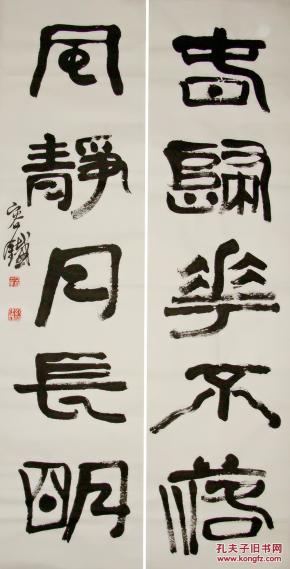 春歸華不落
風靜月長明
容鐵
孔夫子旧书网